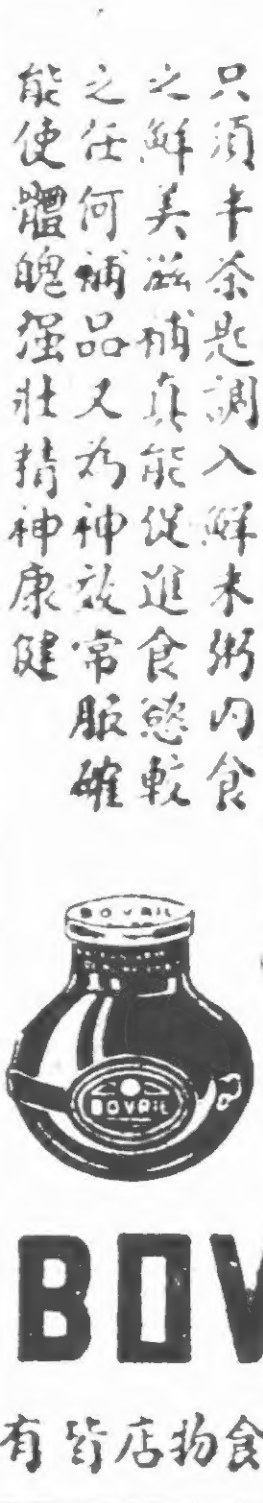 只須半茶匙調入鮮米粥內食
之鮮美滋補真能促進食慾較
之任何補品又為神效常服確
能使體魄强壯精神康健
BOVRIL
BOVRIL
BOV
食物店皆有